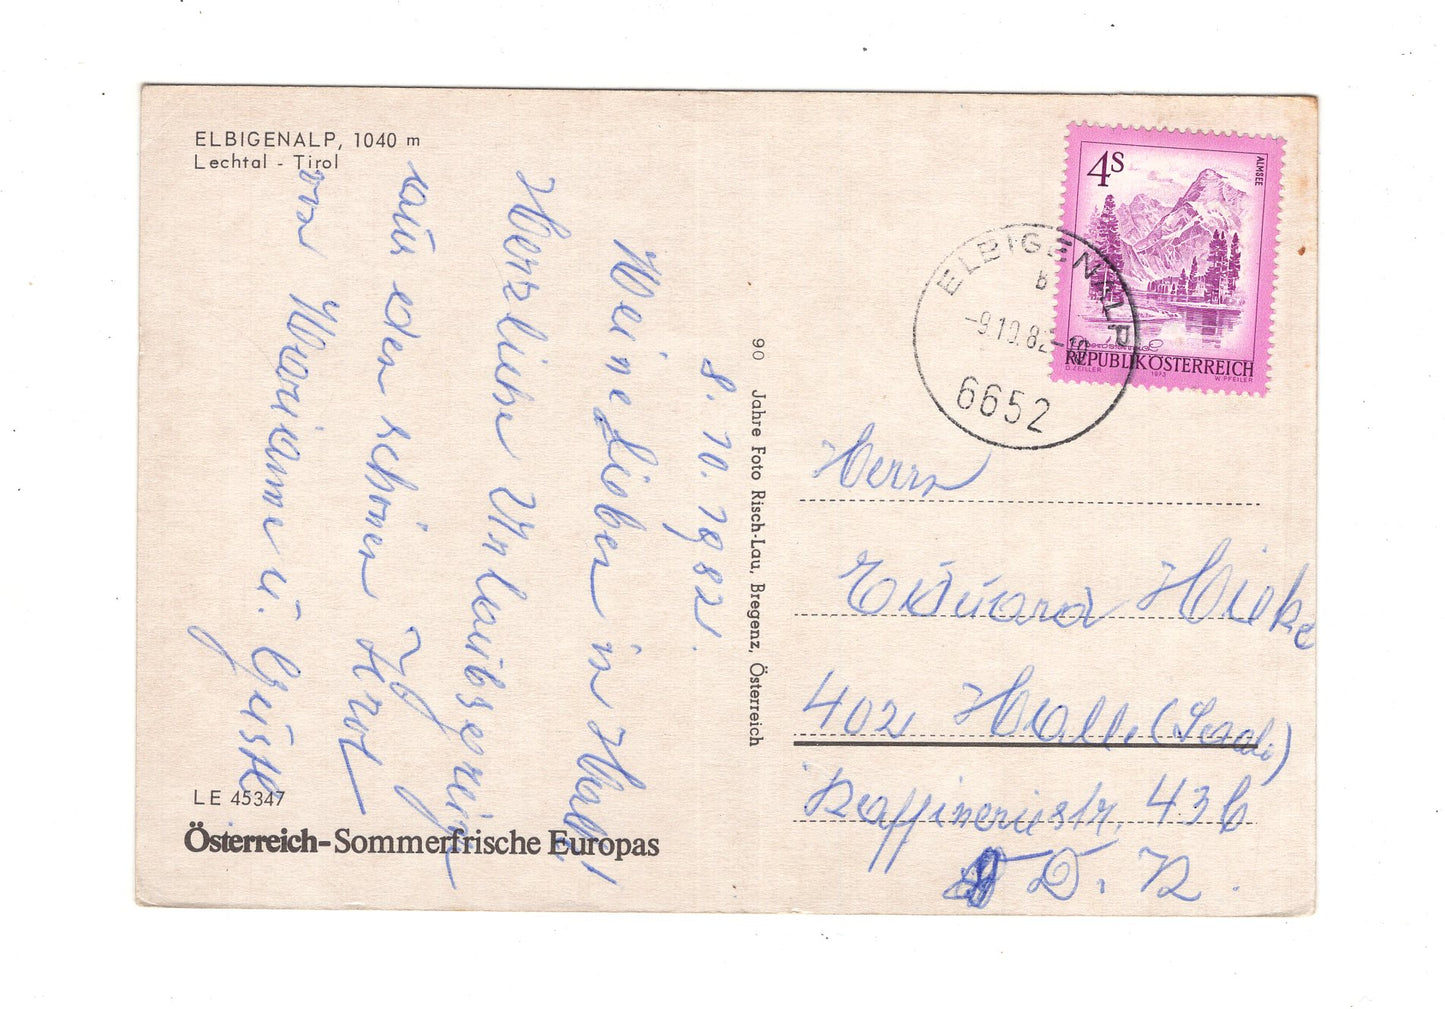 ELBIGENALP, 1040 m
Lechtal - Tirol
8. 10. 1982.
Meine Lieben in Halle!
Herzliche Urlaubsgrüße
aus den schönen Tirol
von Marianne u. Gustl
LE 45347
Österreich-Sommerfrische Europas
90 Jahre Foto Risch-Lau, Bregenz, Österreich
4S
ALMSEE
REPUBLIK ÖSTERREICH
O. ZEILLER 1973 W. PFEILER
ELBIGENALP
B
-9.10.82-10
6652
Herrn
Eduard Hielke
402 Halle (Saale)
Raffineriestr. 43b
D. R.